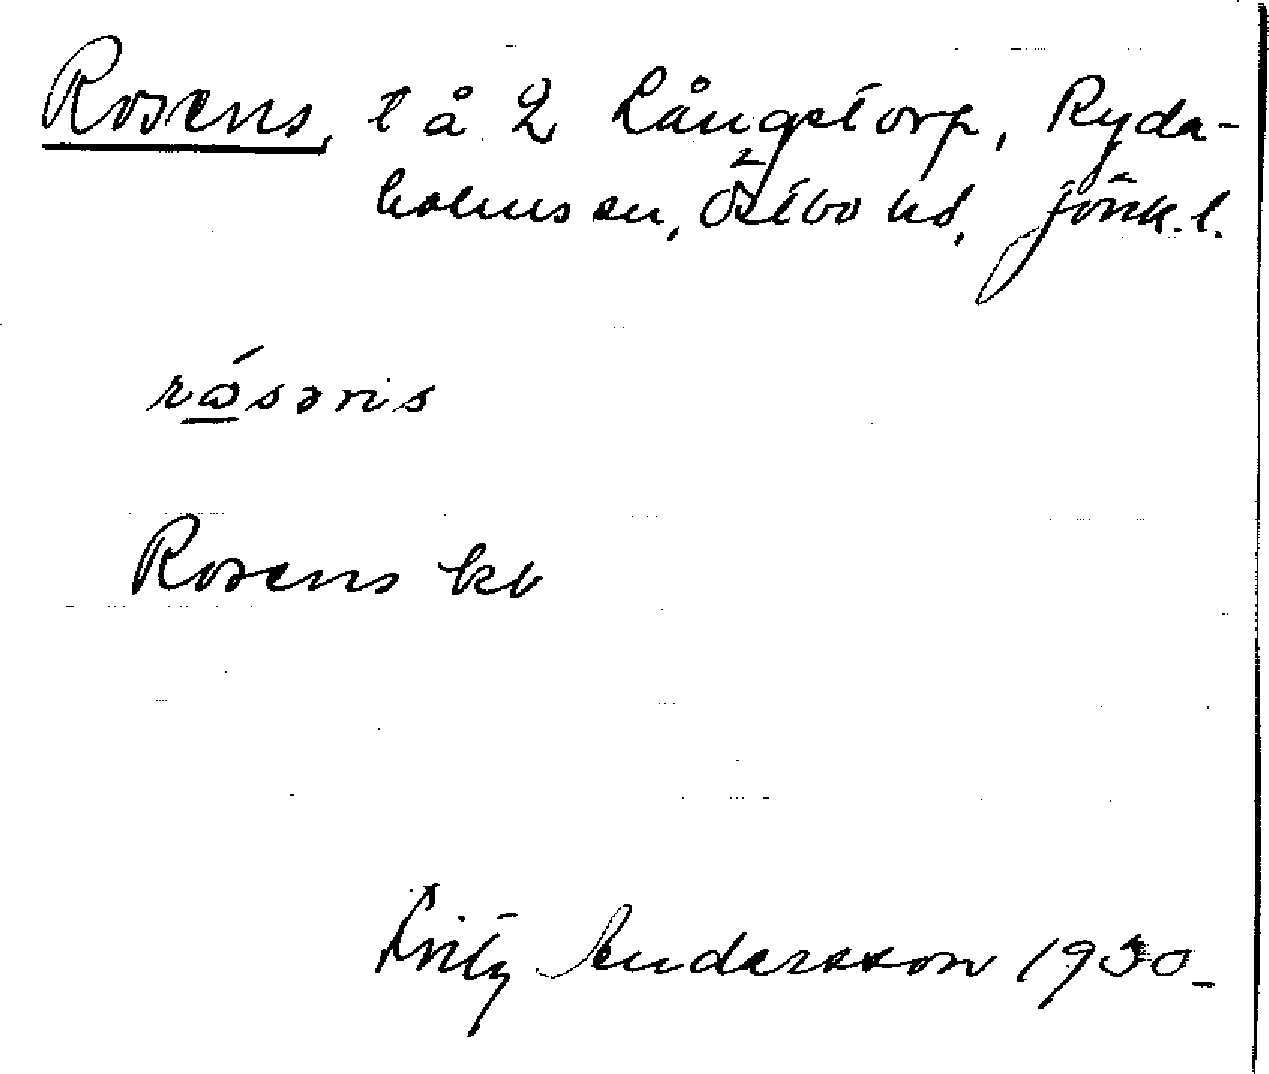 Rosens, t å 2 Långstorp, Ryda-
holms sn, Östbo hd, Jönk. l.
rɷ́səns
Rosens kb
Fritz Andersson 1930